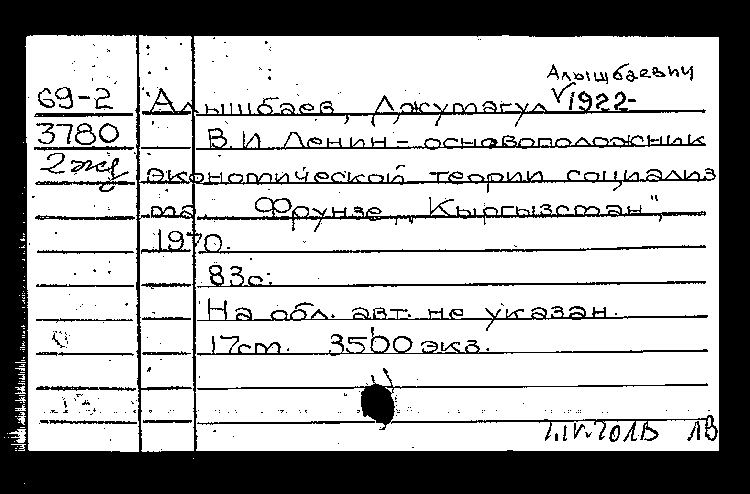 Алышбаевич
69-2 Алышбаев, Джумагул 1922-
3780 В.И. Ленин - основоположник
2 экз экономической теории социализ
ма. Фрунзе, "Кыргызстан",
1970.
83с.
На обл. авт. не указан.
17см. 3500 экз.
ЛВ